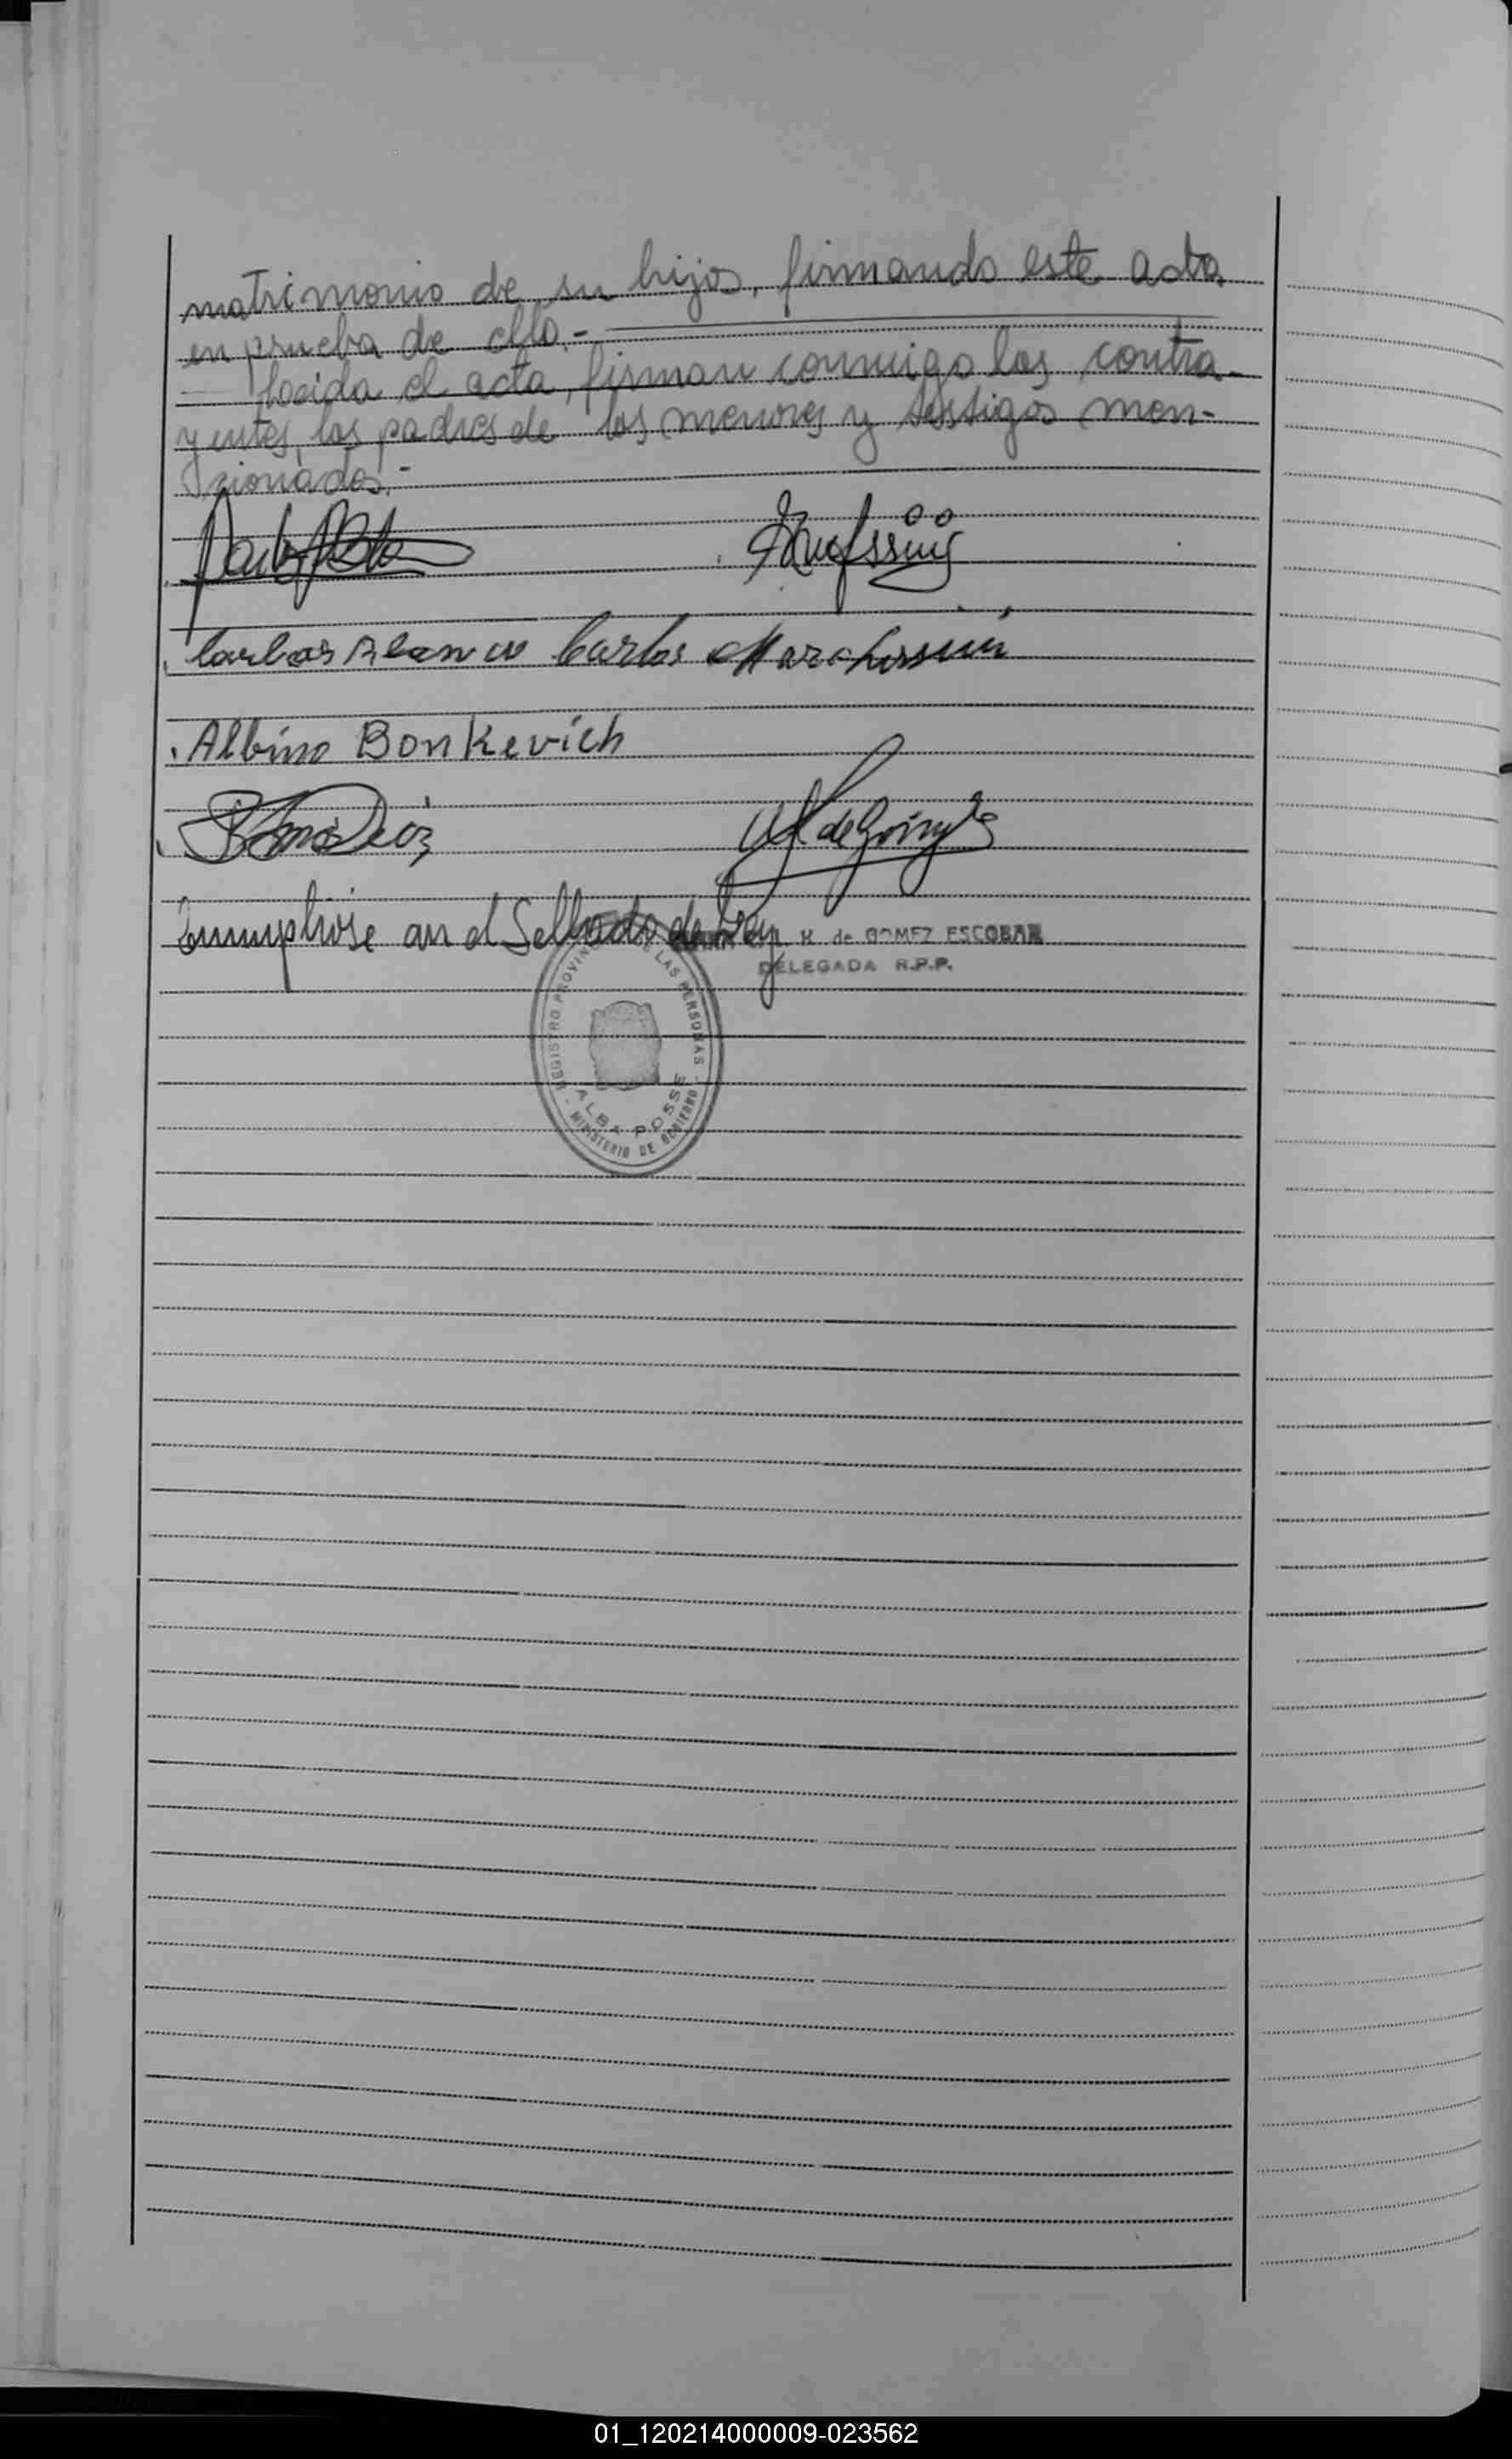 matrimonio de su hijos, firmando este acta
en prueba de ello.-
Leida el acta, firman conmigo los contra-
yentes, los padres de los menores y testigos men-
zionados.-
Carlos Marohssin
Albino Bonkevich
de
an el Sellado de Ley K de GOMEZ ESCOBAR
DELEGADA R.P.P.
REGISTRO PROVIN DE LAS PERSONAS
ALBA POSSE
MINISTERIO DE GOBIERNO
01_120214000009-023562